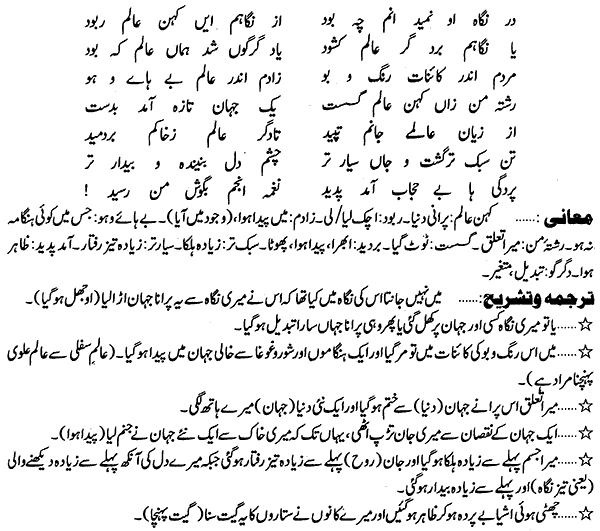 در نگاہ او نمید انم چہ بود از نگاہم ایں کہن عالم ربود
یا نگاہم بر د گر عالم کشود یاد گرگوں شد ہماں عالم کہ بود
مردم اندر کائنات رنگ و بو زادم اندر عالم بے ہاے و ہو
رشتہ من زاں کہن عالم گسست یک جہان تازہ آمد بدست
از زیان عالمے جانم تپید تادگر عالم زخاکم بردمید
تن سبک ترگشت و جاں سیار تر چشم دل بنیندہ و بیدار تر
پردگی ہا بے حجاب آمد پدید نغمہ انجم بگوش من رسید !
معانی :...... کہن عالم: پرانی دنیا۔ ربود: اچک لیا/لی۔ زادم: میں پیدا ہوا، (وجود میں آیا)۔ بے ہائے و ہو: جس میں کوئی ہنگامہ
نہ ہو۔ رشتۂ من: میرا تعلق۔ گسست: ٹوٹ گیا۔ بردید: ابھرا، پیدا ہوا، پھوٹا۔ سبک تر: زیادہ ہلکا۔ سیارتر: زیادہ تیز رفتار۔ آمد پدید: ظاہر
ہوا۔ دگرگو: تبدیل، متغیر۔
ترجمہ وتشریح:...... میں نہیں جانتا اس کی نگاہ میں کیا تھا کہ اس نے میری نگاہ سے یہ پرانا جہان اڑا لیا (اوجھل ہو گیا)۔
☆......یا تو میری نگاہ کسی اور جہان پر کھل گئی یا پھر وہی پرانا جہان سارا تبدیل ہو گیا۔
☆......میں اس رنگ و بو کی کائنات میں تو مر گیا اور ایک ہنگاموں اور شور و غوغا سے خالی جہان میں پیدا ہو گیا۔ (عالم سفلی سے عالم علوی
پہنچنا مراد ہے)۔
☆......میرا تعلق اس پرانے جہان (دنیا) سے ختم ہو گیا اور ایک نئی دنیا (جہان) میرے ہاتھ لگی۔
☆......ایک جہان کے نقصان سے میری جان تڑپ اٹھی، یہاں تک کہ میری خاک سے ایک نئے جہان نے جنم لیا (پیدا ہوا)۔
☆......میرا جسم پہلے سے زیادہ ہلکا ہو گیا اور جان (روح) پہلے سے زیادہ تیز رفتار ہو گئی جبکہ میرے دل کی آنکھ پہلے سے زیادہ دیکھنے والی
(یعنی تیز نگاہ) اور پہلے سے زیادہ بیدار ہو گئی۔
☆......چھٹی ہوئی اشیا بے پردہ ہو کر ظاہر ہو گئیں اور میرے کانوں نے ستاروں کا یہ گیت سنا (گیت پہنچا)۔